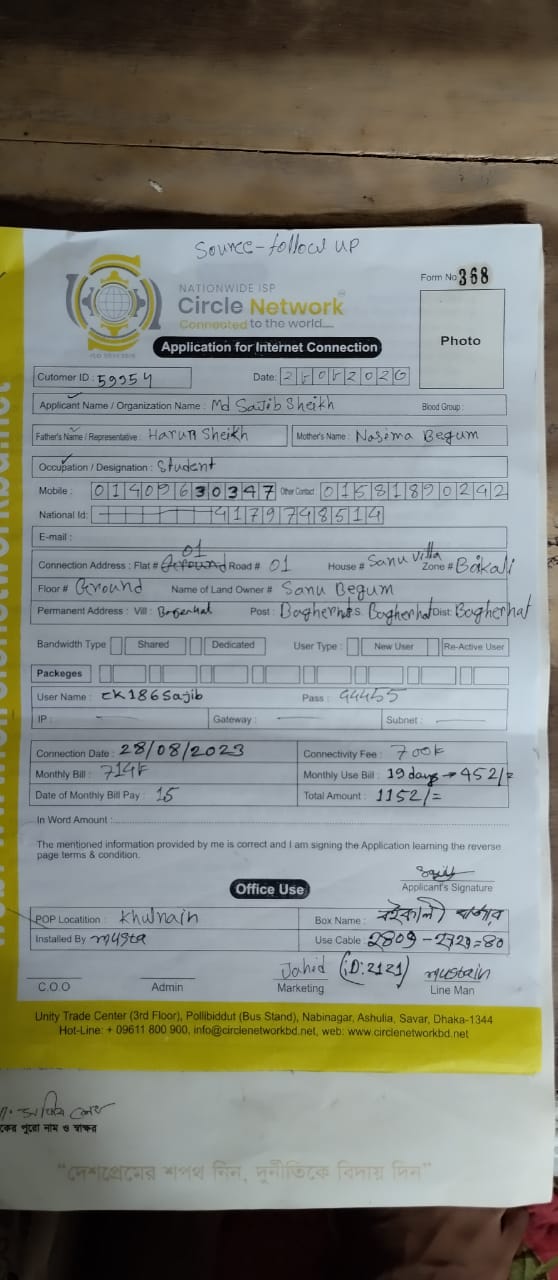 Source - follow up
NATIONWIDE ISP
Circle Network
Connected to the world....
ISO 9001:2015
Form No 368
Photo
Application for Internet Connection
Cutomer ID : 59954 Date:
Applicant Name / Organization Name : Md Sajib Sheikh Blood Group :
Father's Name / Representative : Harun Sheikh Mother's Name : Nasima Begum
Occupation / Designation : Student
Mobile : 01409630347 Other Contact 01581890242
National Id: 4179748514
E-mail :
Connection Address : Flat # 01 Road # 01 House # Sanu Villa Zone # Boikali
Floor # Ground Name of Land Owner # Sanu Begum
Permanent Address : Vill : Post : Bagherhat P.S Bagherhat Dist: Bagherhat
Bandwidth Type Shared Dedicated User Type : New User Re-Active User
Packeges
User Name : CK186Sajib Pass : 94455
IP : Gateway : Subnet :
Connection Date : 28/08/2023 Connectivity Fee : 700৳
Monthly Bill : 714৳ Monthly Use Bill : 19 days → 452/=
Date of Monthly Bill Pay : 15 Total Amount : 1152/=
In Word Amount :
The mentioned information provided by me is correct and I am signing the Application learning the reverse
page terms & condition.
Applicant's Signature
Office Use
POP Locatition : Khulnain Box Name : বইকালী বাজার
Installed By Musta Use Cable 2809-2729=80
Jahid (iD:2121) mustain
C.O.O Admin Marketing Line Man
Unity Trade Center (3rd Floor), Pollibiddut (Bus Stand), Nabinagar, Ashulia, Savar, Dhaka-1344
Hot-Line: + 09611 800 900, info@circlenetworkbd.net, web: www.circlenetworkbd.net
পুরো নাম ও স্বাক্ষর
“দেশপ্রেমের শপথ নিন, দুর্নীতিকে বিদায় দিন”